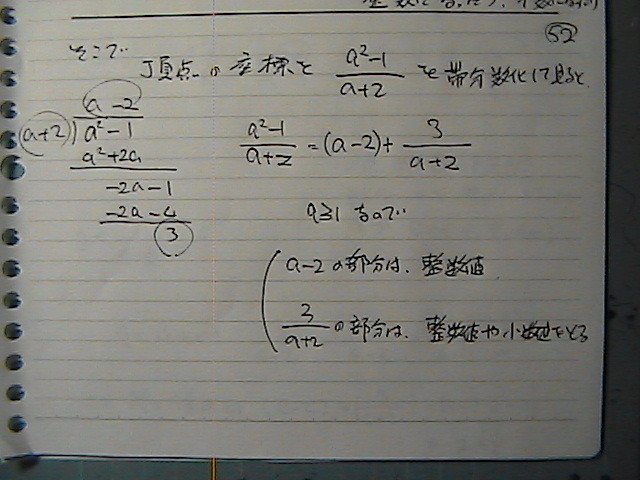 52
そこで
頂点の座標を (a²-1)/(a+2) を帯分数化して見ると
a - 2
a+2 ) a² - 1
a² + 2a
-2a - 1
-2a - 4
3
(a²-1)/(a+2) = (a-2) + 3/(a+2)
a≧1 なので
a-2 の部分は、整数値
3/(a+2) の部分は、整数値や小数値をとる